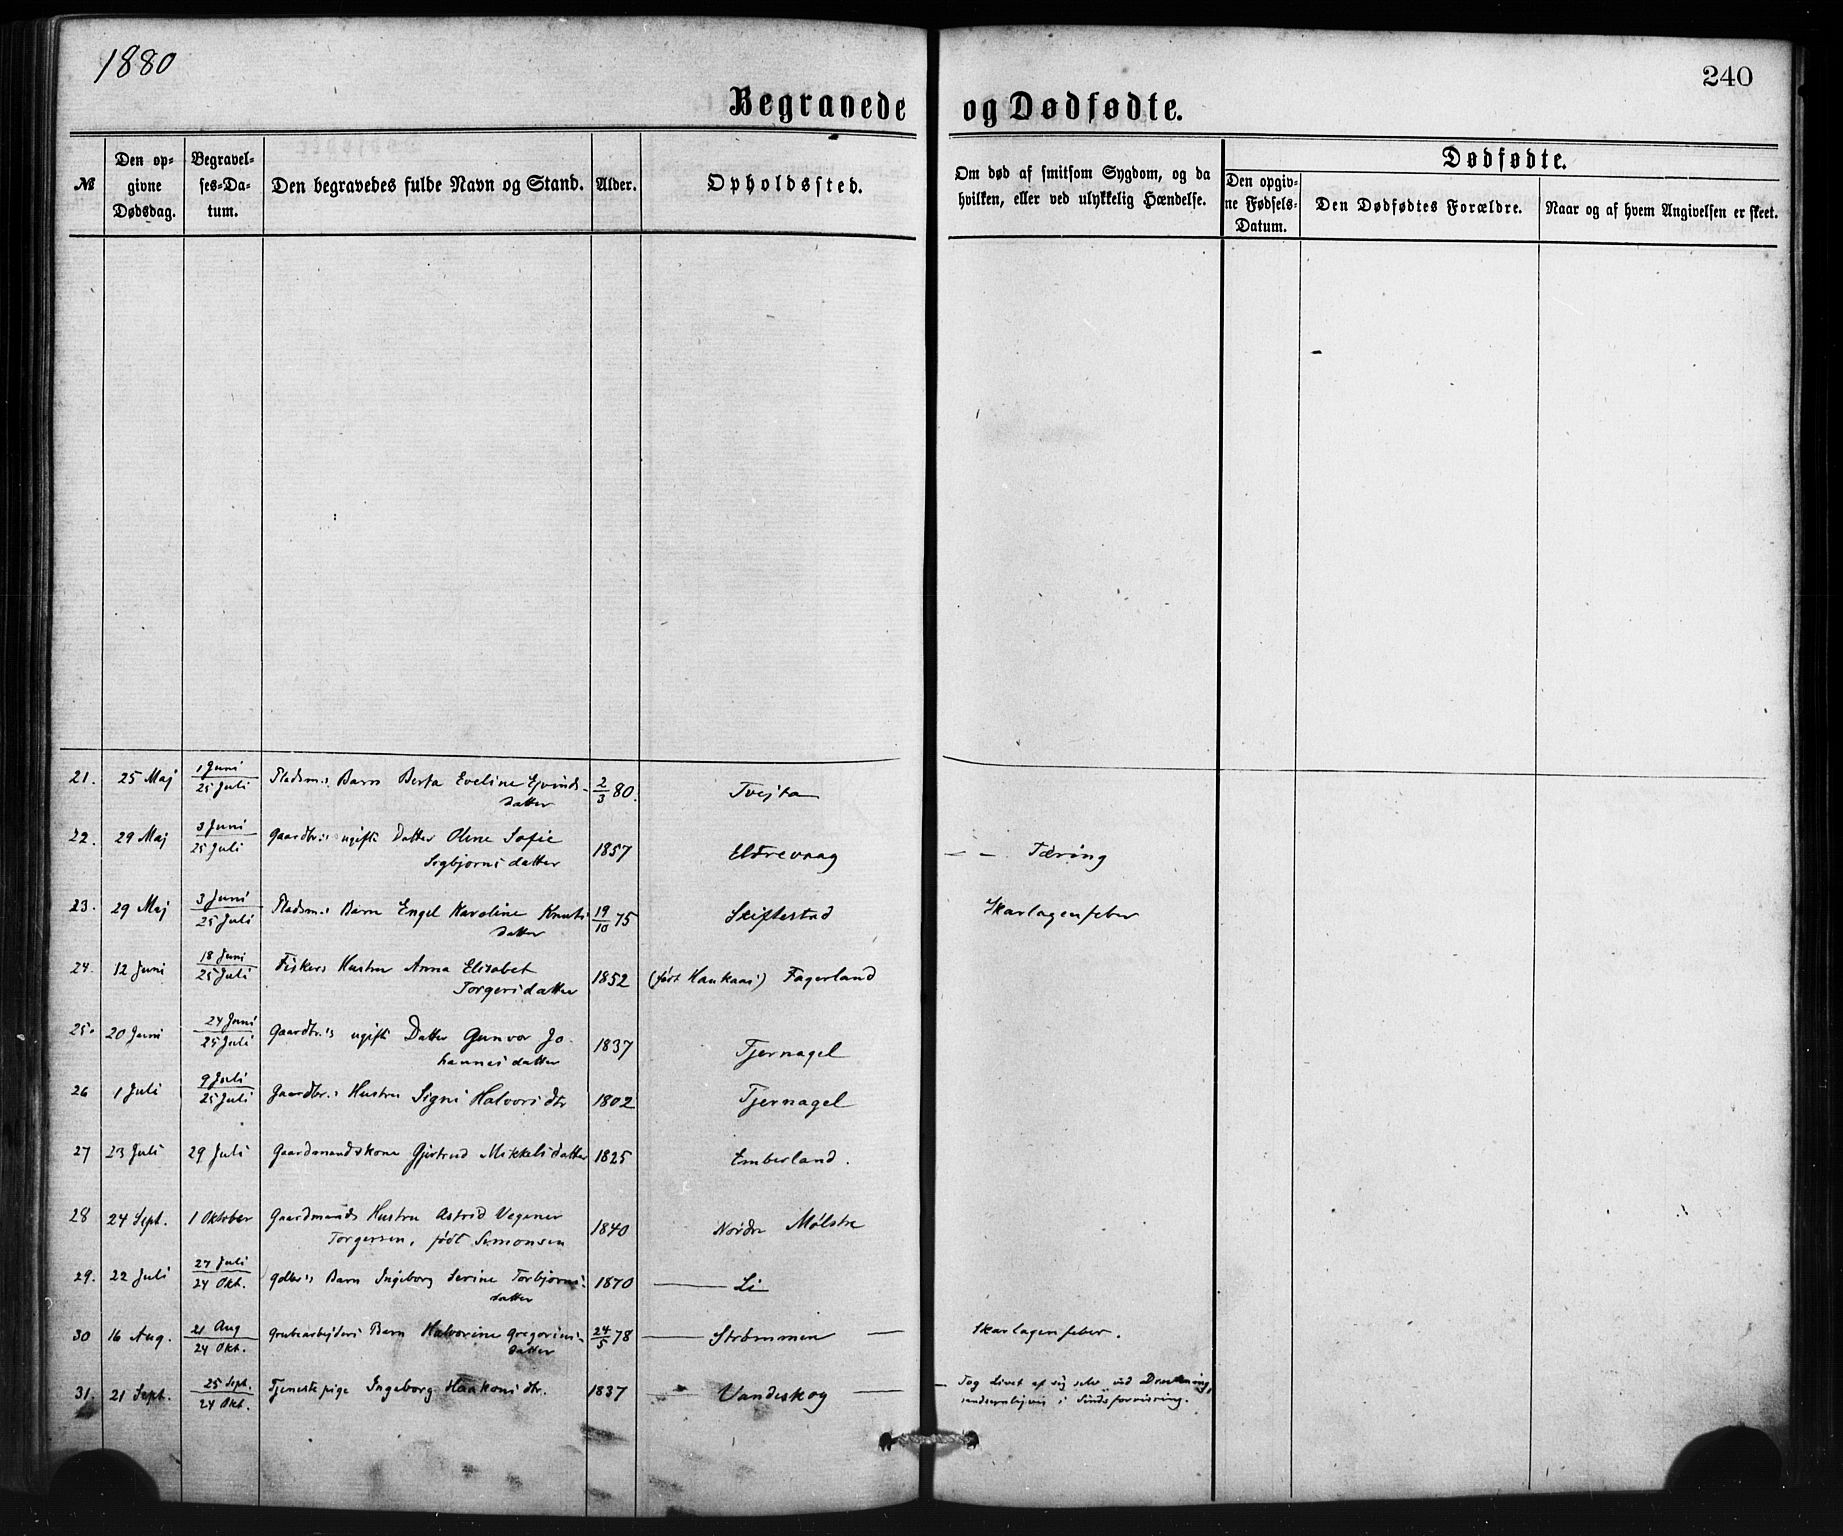 1880
240
Begravede og Dødfødte.
№
Den opgivne Dødsdag.
Begravelses-Datum.
Den begravedes fulde Navn og Stand.
Alder.
Opholdssted.
Om død af smitsom Sygdom, og da hvilken, eller ved ulykkelig Hændelse.
Dødfødte.
Den opgivne Fødsels-Datum.
Den Dødfødtes Forældre.
Naar og af hvem Angivelsen er skeet.
21. 25 Maj 1 Juni / 25 Juli Pladsm.s Barn Berta Eveline Ejvinds- 2/3 80. Tvejta
datter
22. 29 Maj 3 Juni / 25 Juli Gaardbr.s ugifte Datter Oline Sofie 1857 Eldrevaag — — Tæring
Sigbjørnsdatter
23. 29 Maj 3 Juni / 25 Juli Pladsm.s Barn Engel Karoline Knuts- 19/10 75 Skiftestad Skarlagenfeber
datter
24. 12 Juni 18 Juni / 25 Juli Fiskers Hustru Anna Elisabet 1852 (født Haukaas) Fagerland
Torgersdatter
25. 20 Juni 24 Juni / 25 Juli Gaardbr.s ugifte Datter Gunvor Jo- 1837 Tjernagel
hannesdatter
26 1 Juli 9 Juli / 25 Juli Gaardbr.s Hustru Signi Halvorsdtr 1802 Tjernagel
27 23 Juli 29 Juli Gaardmandskone Gjertrud Mikkelsdatter 1825 Emberland.
28 24 Sept. 1 Oktober Gaardmands Hustru Astrid Vegener 1840 Nordre Mølstre
Torgersen, født Simonsen
29. 22 Juli 27 Juli / 24 Okt. Gdbr.s Barn Ingeborg Serine Torbjørns- 1870 — Li
datter
30 16 Aug. 21 Aug / 24 Okt. Grubearbejders Barn Halvorine Gregorius- 24/5 78 — Strømmen — Skarlagenfeber.
datter
31. 21 Sept. 25 Sept. / 24 Okt. Tjenestepige Ingeborg Haakonsdtr. 1837 — Vandeskog — — Tog Livet af sig selv ved Drukning,
sandsynligvis i Sindsforvirring.